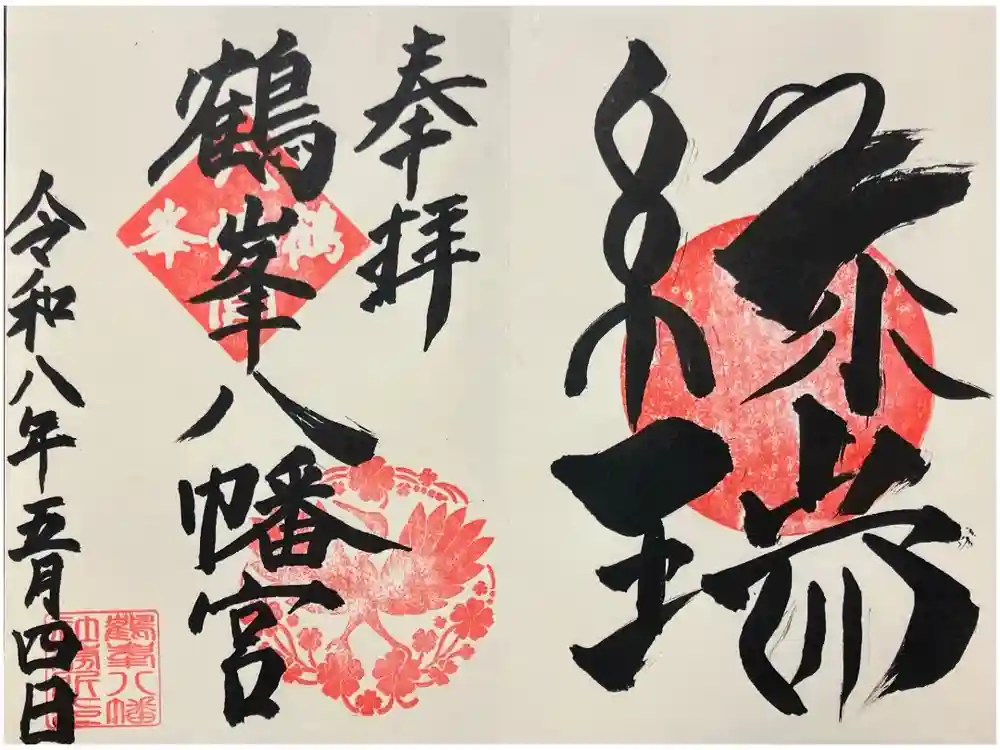 瑞
奉拝
鶴峯八幡宮
令和八年五月四日
鶴峯八幡